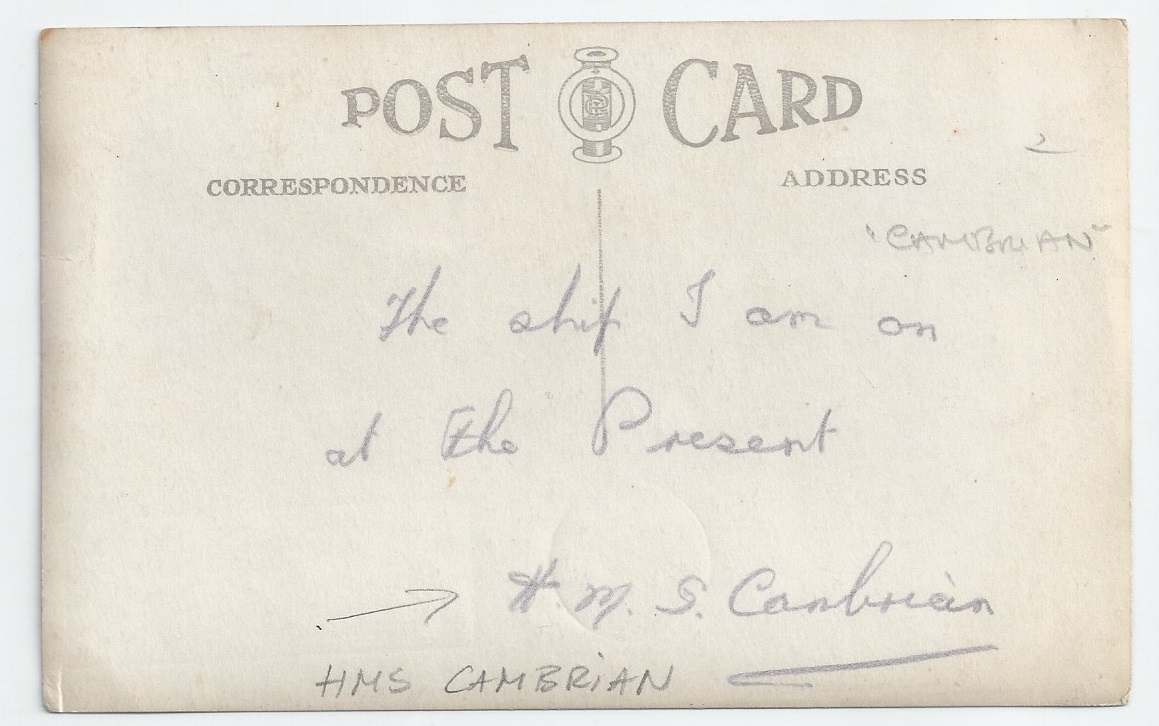 POST CARD
CORRESPONDENCE
ADDRESS
"CAMBRIAN"
The ship I am on
at the Present
H. M. S. Canbrian
HMS CAMBRIAN